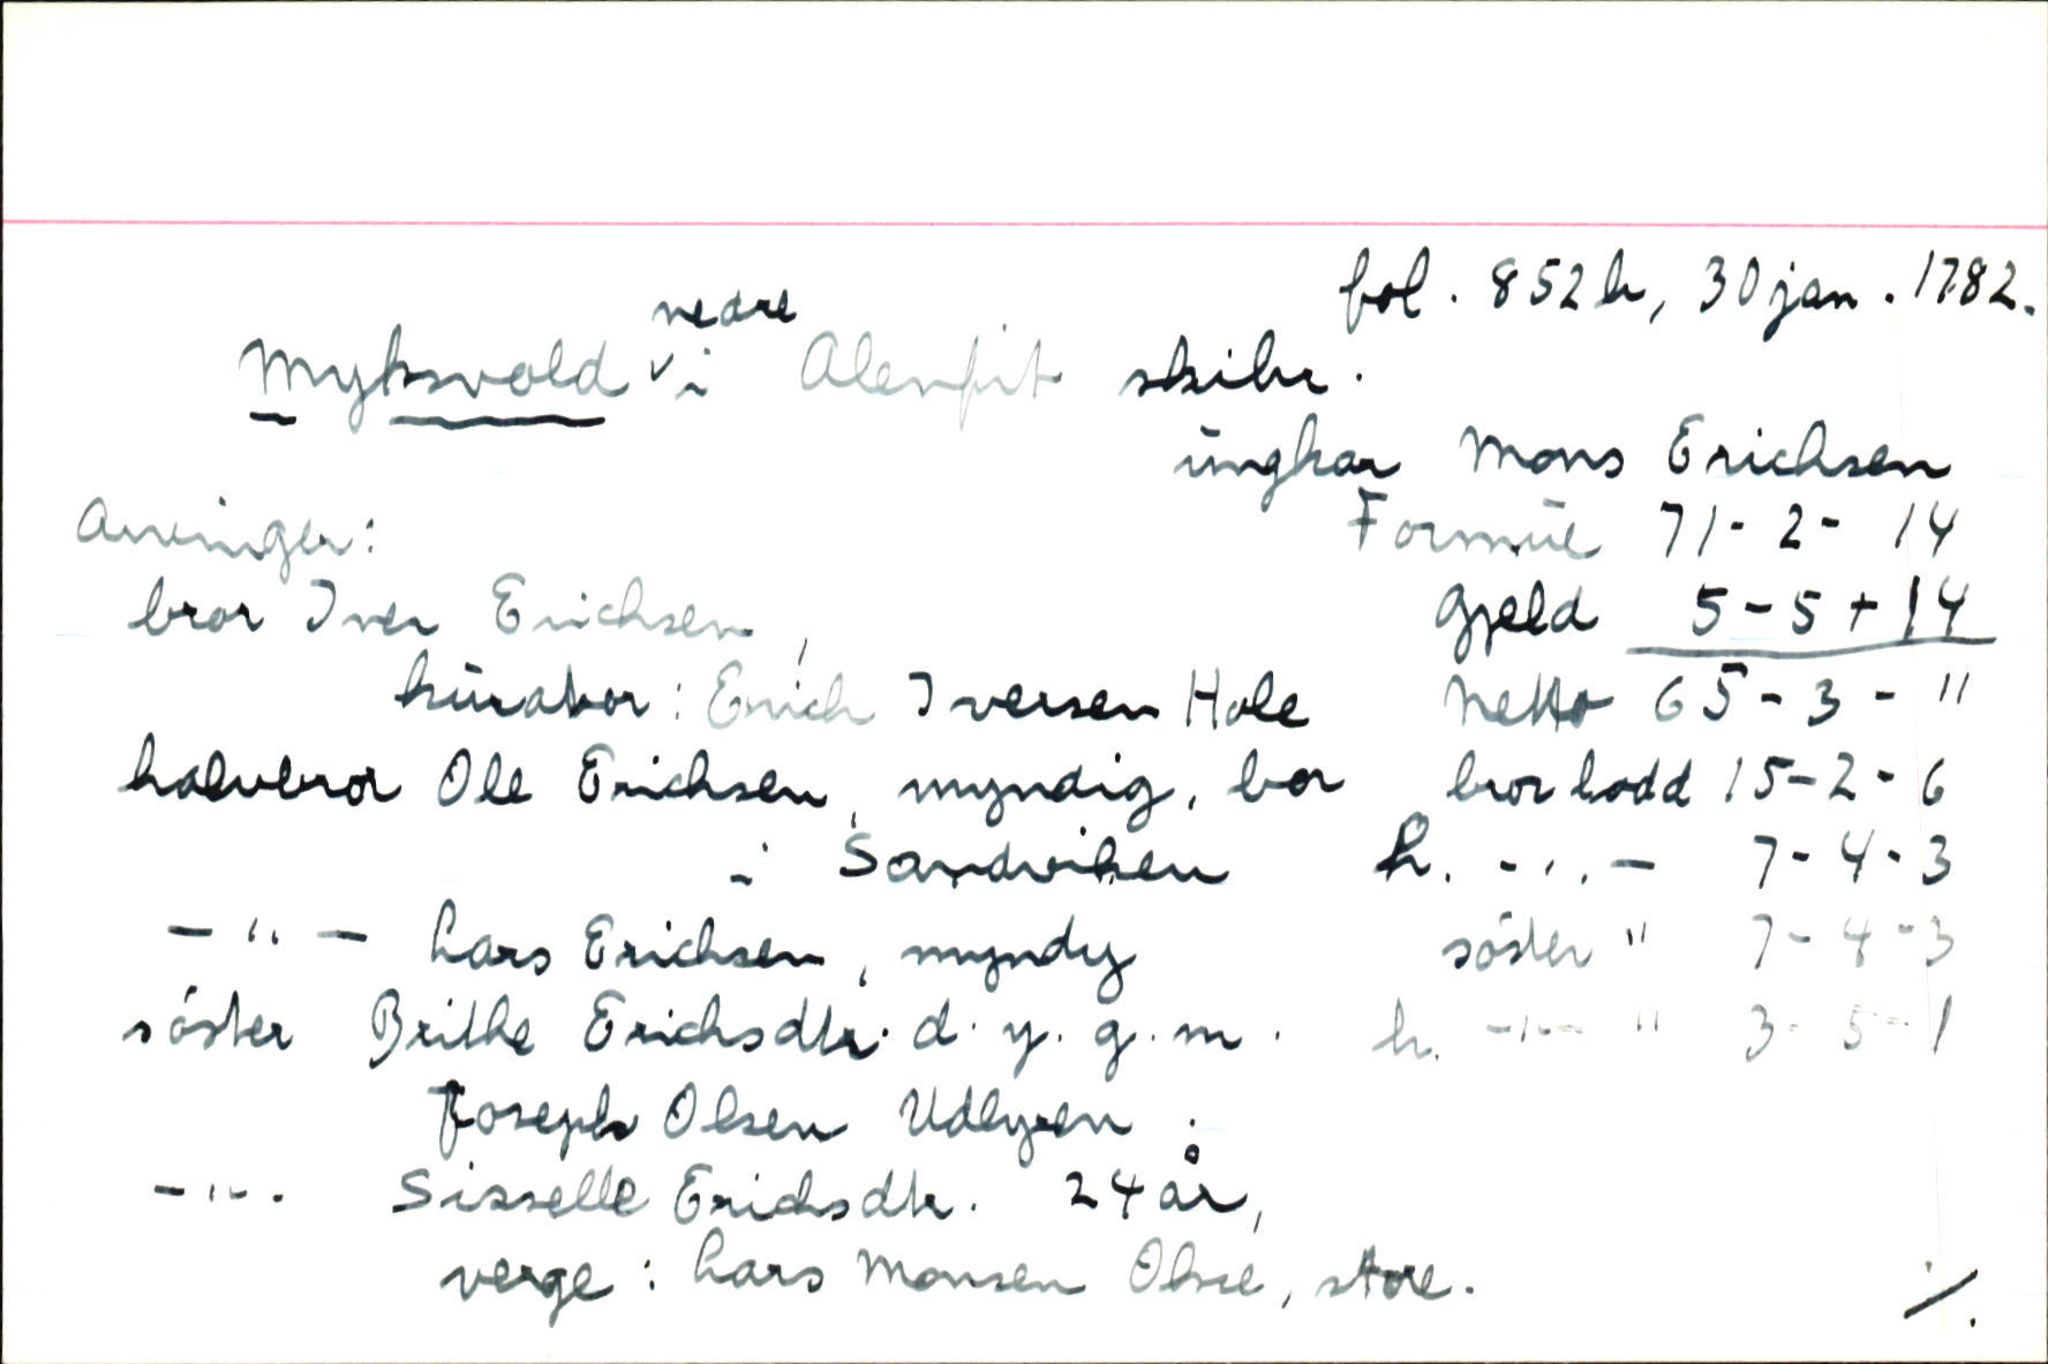 fol. 852 b, 30 jan. 1782.
nedre
Myksvold i Alenfit skibr.
ungkar Mons Erichsen
Arvinger: Formue 71-2-14
bror Iver Erichsen, Gjeld 5-5+14
kurator: Erich Iversen Hole Netto 65-3-"
halvbror Ole Erichsen, myndig, bor brorlodd 15-2-6
i Sandviken h. -"- 7-4-3
-"- Lars Erichsen, myndig söster " 7-4-3
söster Brithe Erichsdtr. d. y. g. m. h. -"- " 3-5-1
Joseph Olsen
-"- Sisselle Erichsdtr. 24 år,
verge: Lars Monsen Olsvie, store.
./.